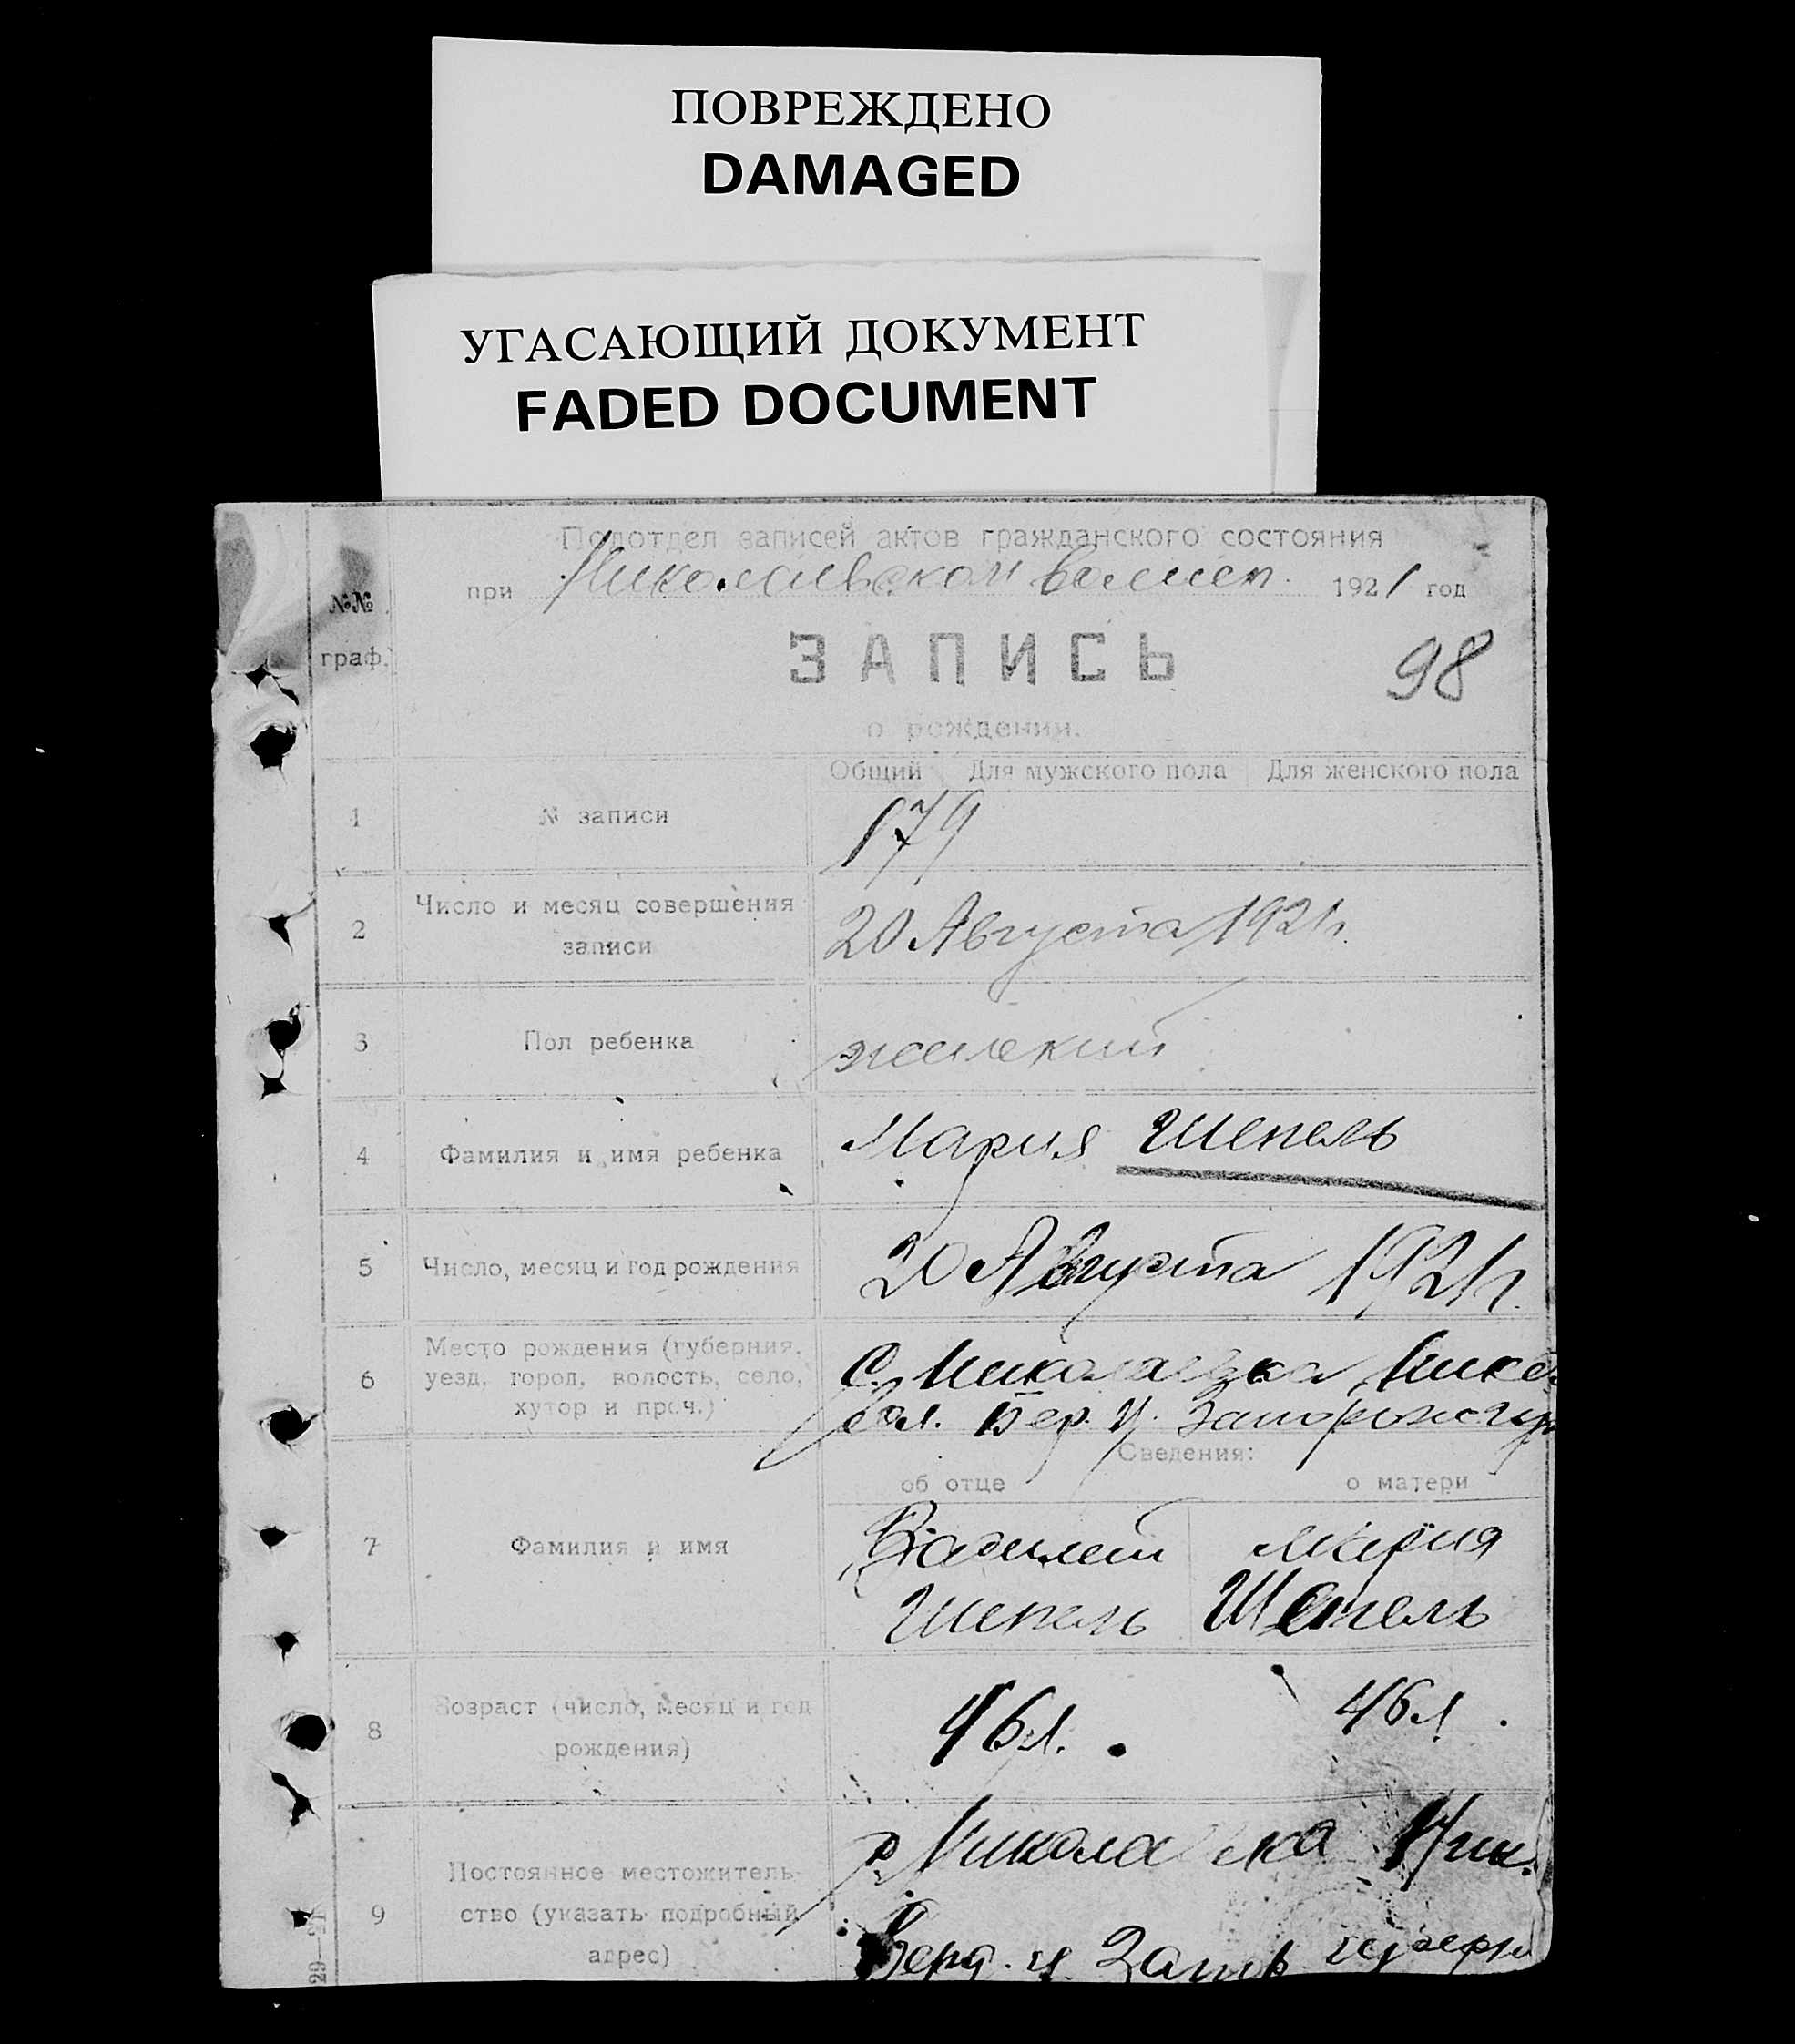 ПОВРЕЖДЕНО
DAMAGED
УГАСАЮЩИЙ ДОКУМЕНТ
FADED DOCUMENT
Подотдел записей актов гражданского состояния
при Николаевском 1921 год
№№
граф.
ЗАПИСЬ
98
о рождении.
Общий Для мужского пола Для женского пола
1 № записи 179
2 Число и месяц совершения записи 20 Августа 1921 г.
3 Пол ребенка женский
4 Фамилия и имя ребенка Мария Шепель
5 Число, месяц и год рождения 20 Августа 1921 г.
6 Место рождения (губерния,
уезд, город, волость, село,
хутор и проч.)
С. Николаевка Нико
вол. Бер. у. Запорож гу
Сведения:
об отце о матери
7 Фамилия и имя
Василий Мария
Шепель Шепель
8 Возраст (число, месяц и год
рождения)
46 л. 46 л.
9 Постоянное местожитель-
ство (указать подробный
адрес)
Николаевка Ник.
Берд. у. Запор губерн
29—21